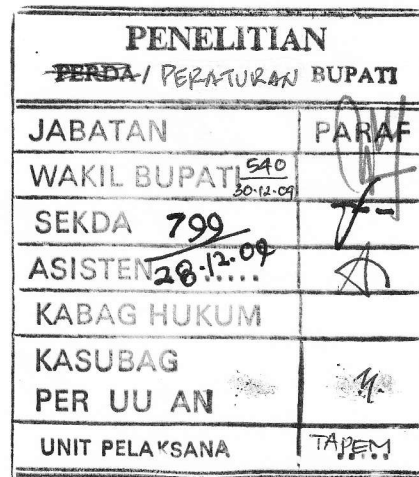 PENELITIAN
PERDA / PERATURAN BUPATI
JABATAN PARAF
WAKIL BUPATI 540
30-12-09
SEKDA 799
ASISTEN 28.12.09.....
KABAG HUKUM
KASUBAG
PER UU AN
UNIT PELAKSANA TAPEM